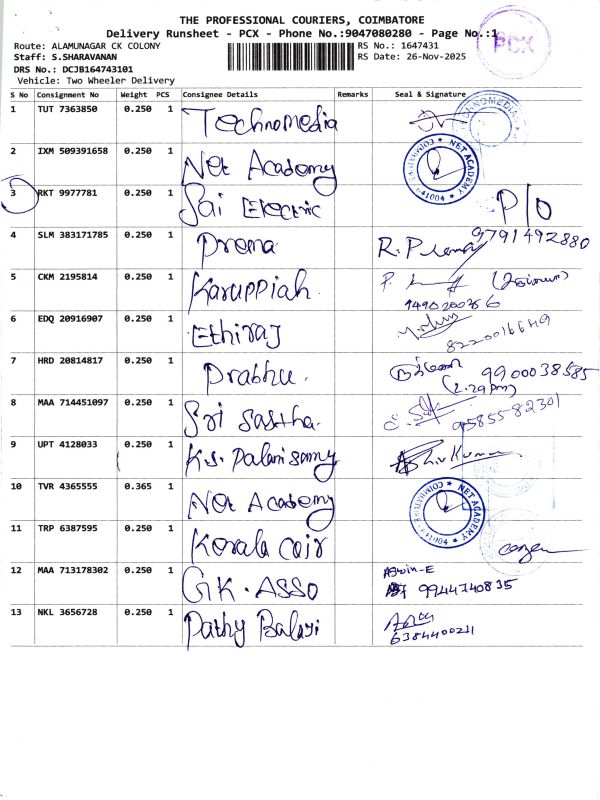 THE PROFESSIONAL COURIERS, COIMBATORE
Delivery Runsheet - PCX - Phone No.:9047080280 - Page No.:1
Route: ALAMUNAGAR CK COLONY
RS No.: 1647431
Staff: S.SHARAVANAN
RS Date: 26-Nov-2025
DRS No.: DCJB164743101
Vehicle: Two Wheeler Delivery
PCX
S No Consignment No Weight PCS Consignee Details Remarks Seal & Signature
1 TUT 7363850 0.250 1 Technomedia TECHNOMEDIA
2 IXM 509391658 0.250 1 Net Academy NET ACADEMY COIMBATORE 641004
3 RKT 9977781 0.250 1 Sai Electric P/O
4 SLM 383171785 0.250 1 Prema R. Prema 9791492880
5 CKM 2195814 0.250 1 Karuppiah P.
9490200366
6 EDQ 20916907 0.250 1 Ethiraj
8220016649
7 HRD 20814817 0.250 1 Prabhu 9900038585
(2.29pm)
8 MAA 714451097 0.250 1 Sri Sastha 9585582301
9 UPT 4128033 0.250 1 K.S. Palanisamy
10 TVR 4365555 0.365 1 Net Academy NET ACADEMY COIMBATORE 641004
11 TRP 6387595 0.250 1 Kerala Coir
12 MAA 713178302 0.250 1 GK. ASSO Aswin-E
9944740835
13 NKL 3656728 0.250 1 Pathy Balaji
6384400211